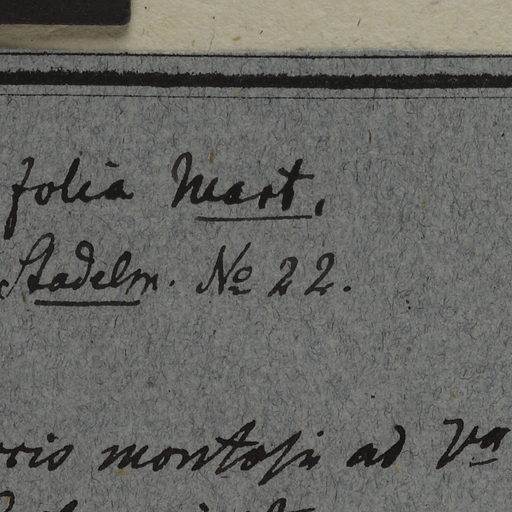 folia Mart,
Stadelm. No 22.
ris montosis ad Va